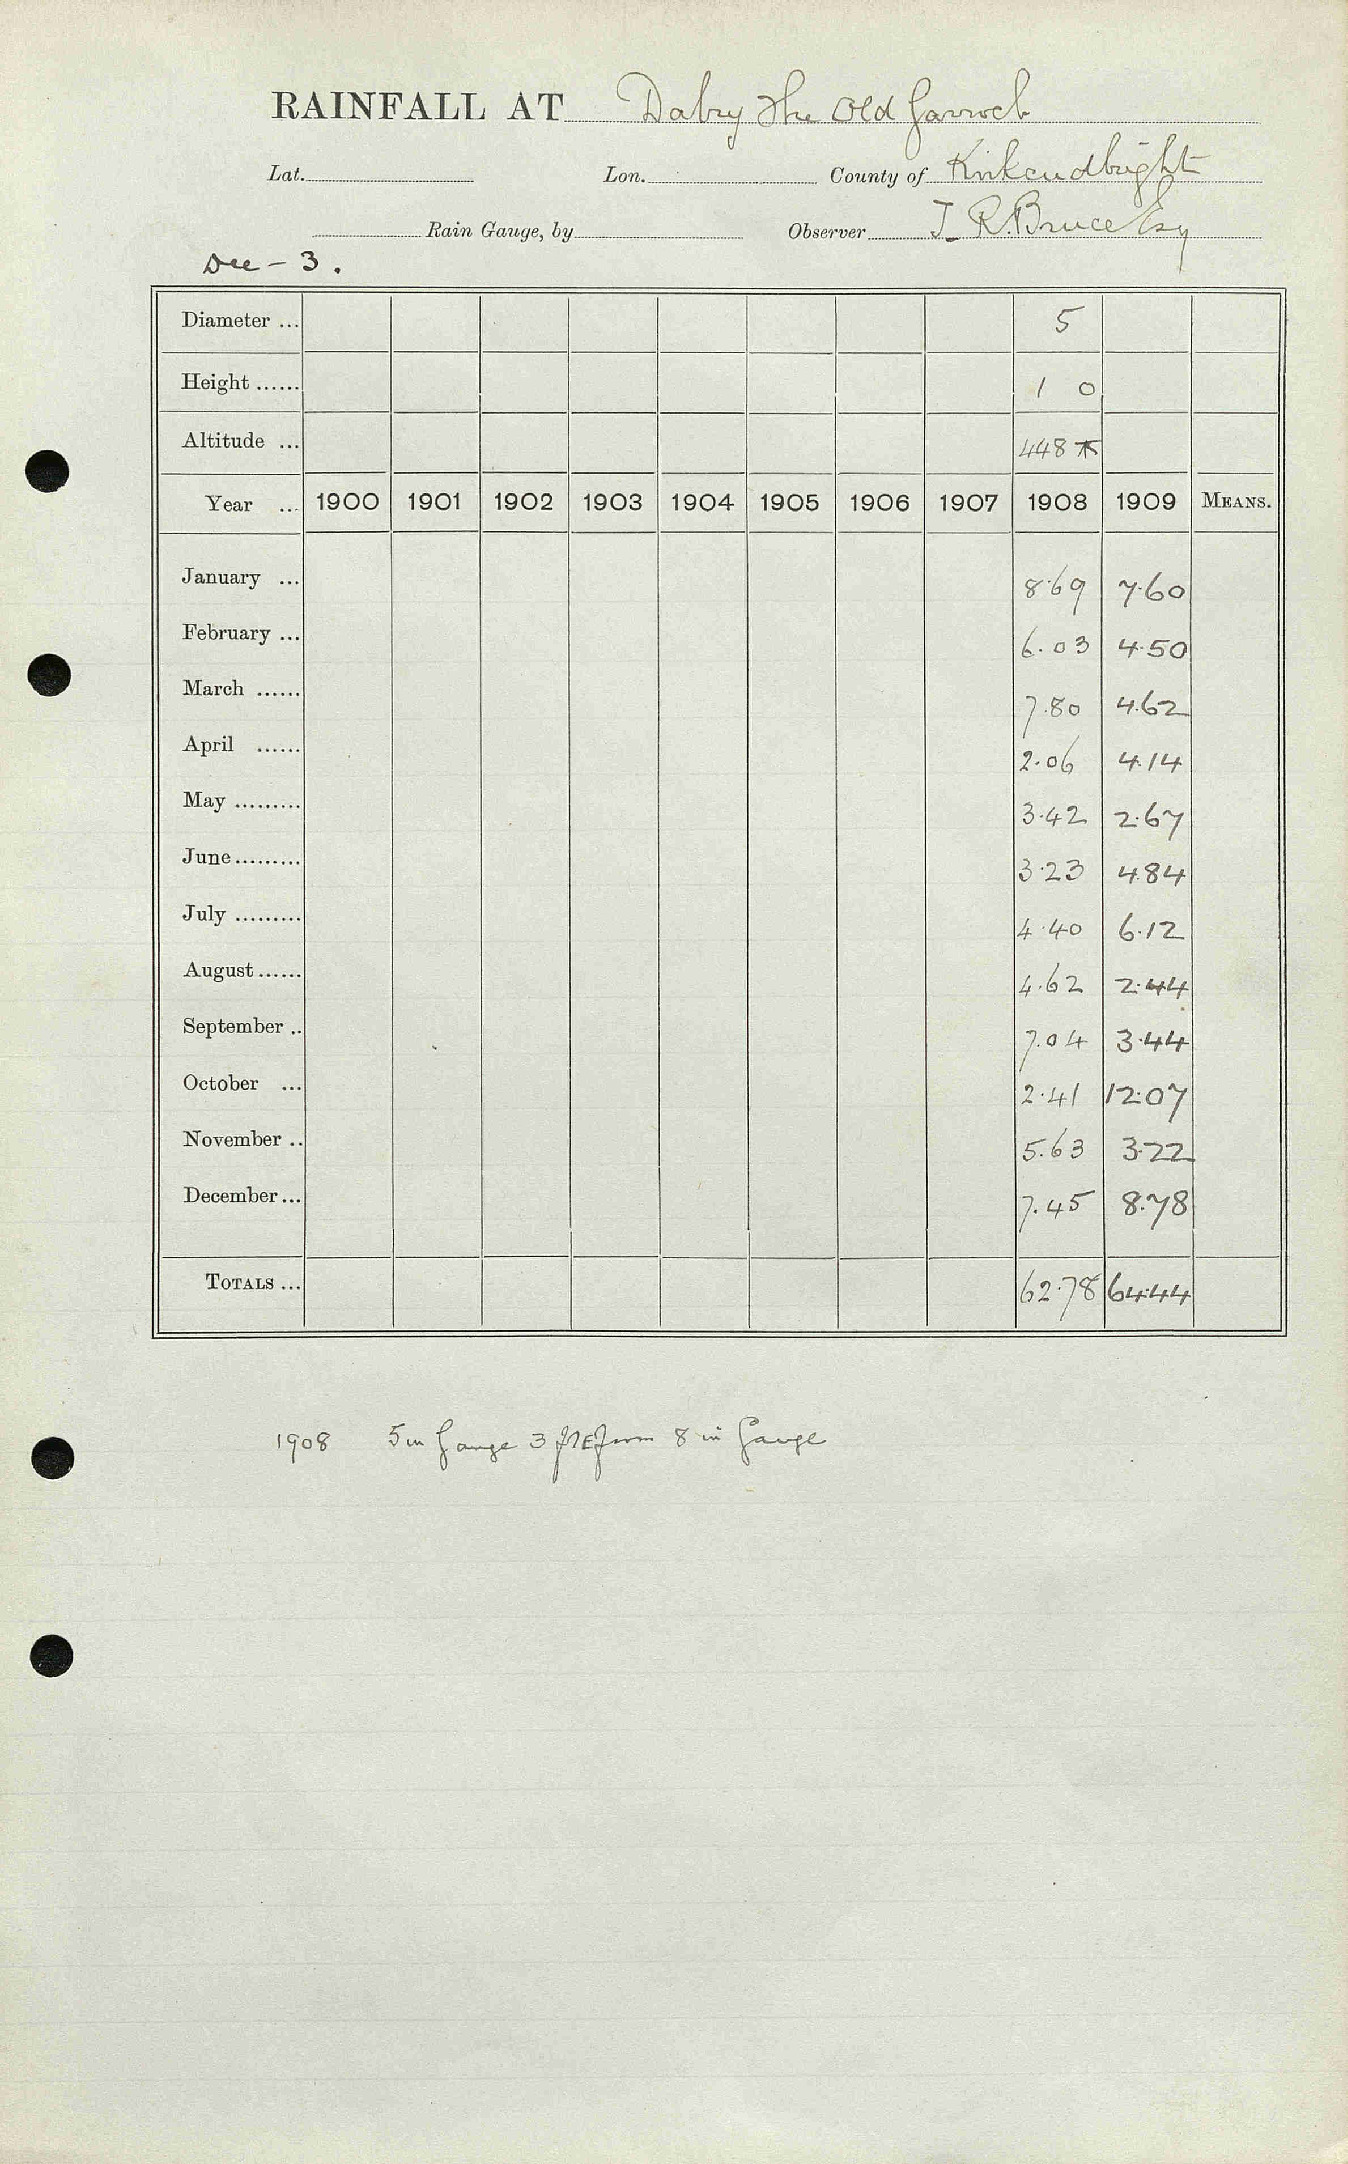 RAINFALL AT Dalry The Old Garroch
Lat. Lon. County of Kirkcudbright
Rain Gauge, by Observer J. R. Bruce Esq
Dee - 3.
Diameter ... 5
Height ...... 1 0
Altitude ... 448
Year ... 1900 1901 1902 1903 1904 1905 1906 1907 1908 1909 MEANS.
January ... 8.69 7.60
February ... 6.03 4.50
March ...... 7.80 4.62
April ...... 2.06 4.14
May ......... 3.42 2.67
June ......... 3.23 4.84
July ......... 4.40 6.12
August ...... 4.62 2.44
September .. 7.04 3.44
October ... 2.41 12.07
November .. 5.63 3.22
December ... 7.45 8.78
TOTALS ... 62.78 64.44
1908 5 in Gauge 3 ft E from 8 in Gauge